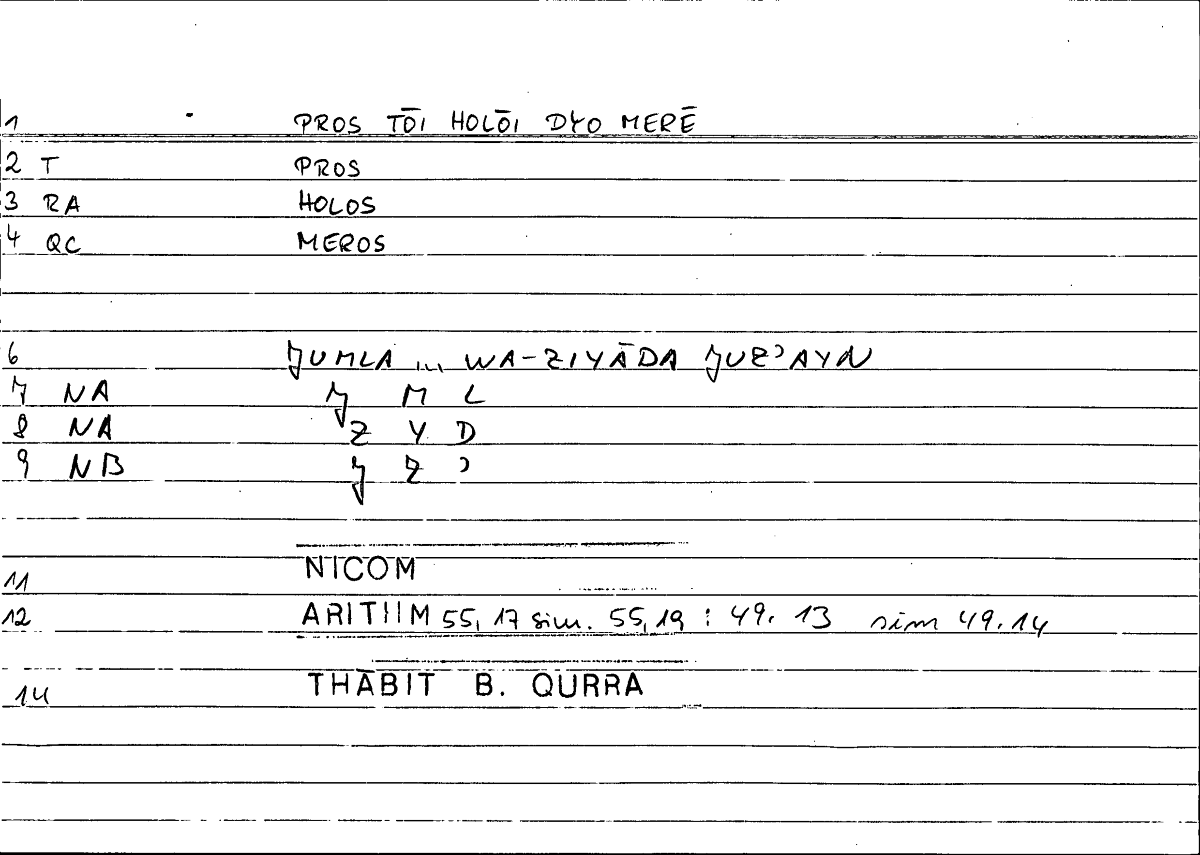 1 PROS TŌI HOLŌI DYO MERĒ
2 T PROS
3 RA HOLOS
4 QC MEROS
6 JUMLA ... WA-ZIYĀDA JUZʾAYN
7 NA J M L
8 NA Z Y D
9 NB J Z ʾ
11 NICOM
12 ARITHM 55, 17 sim. 55,19 : 49. 13 sim 49.14
14 THĀBIT B. QURRA